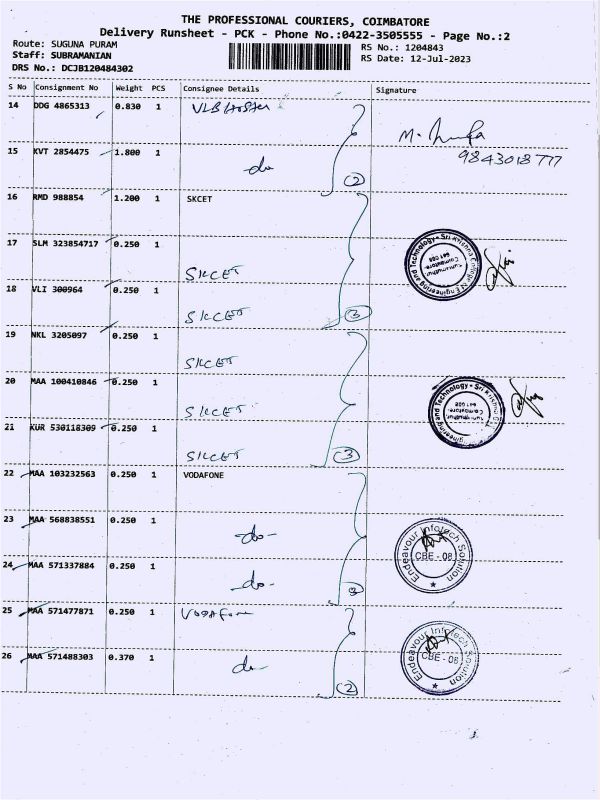 THE PROFESSIONAL COURIERS, COIMBATORE
Delivery Runsheet - PCK - Phone No.:0422-3505555 - Page No.:2
Route: SUGUNA PURAM
Staff: SUBRAMANIAN
DRS No.: DCJB120484302
RS No.: 1204843
RS Date: 12-Jul-2023
S No Consignment No Weight PCS Consignee Details Signature
14 DDG 4865313 0.830 1
15 KVT 2854475 1.800 1 do
(2)
9843018777
16 RMD 988854 1.200 1 SKCET
17 SLM 323854717 0.250 1 SKCET
18 VLI 300964 0.250 1 SKCET
(3)
Sri Krishna College of Engineering and Technology
Kuniamuthur
Coimbatore-
641 008
19 NKL 3205097 0.250 1 SKCET
20 MAA 100410846 0.250 1 SKCET
21 KUR 530118309 0.250 1 SKCET
(3)
22 MAA 103232563 0.250 1 VODAFONE
23 MAA 568838551 0.250 1 -do-
24 MAA 571337884 0.250 1 -do-
Endeavour Infotech Solution
CBE - 08
25 MAA 571477871 0.250 1 Vodafone
26 MAA 571488303 0.370 1 do
(2)
Endeavour Infotech Solution
CBE - 08